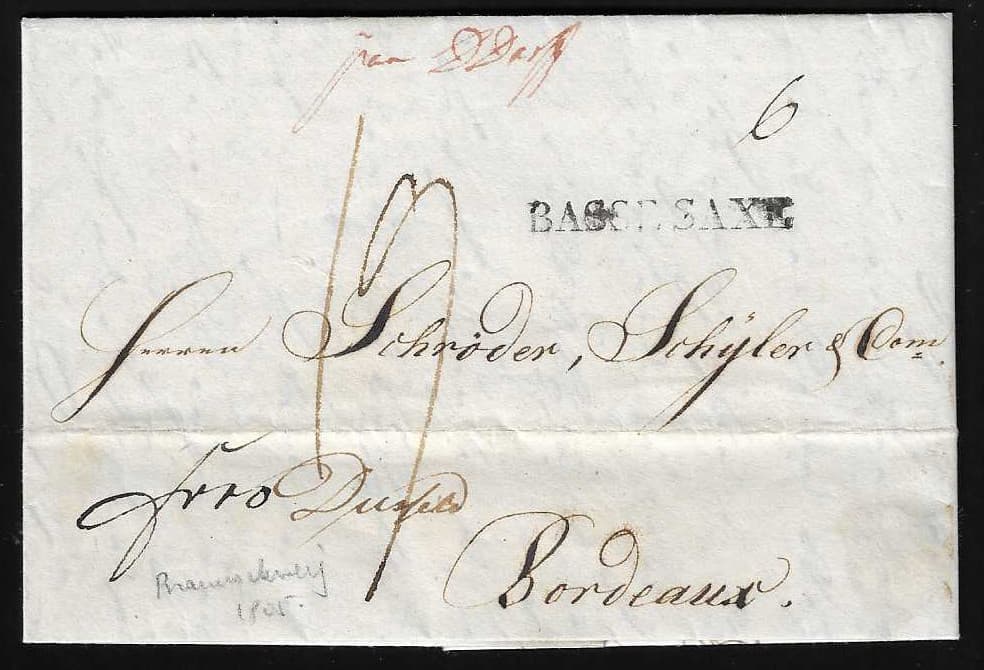 fran D'Dorff
6
BASSE SAXE
19
Herren Schröder, Schÿler & Com
frco Dusseld
Bordeaux.
Braunschweig
1805.